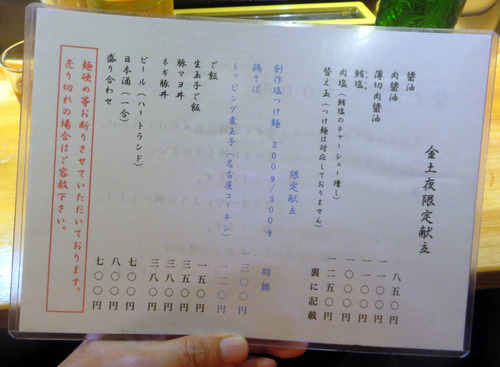 金土夜限定献立
醤油 八五〇円
肉醤油 一一〇〇円
薄切肉醤油 一一〇〇円
鮪塩 一〇〇〇円
肉塩(鮪塩のチャーシュー増し) 一二五〇円
替え玉(つけ麺は対応しておりません) 裏に記載
限定献立
創作塩つけ麺 200g/300g 時価
鶏そば 一三〇〇円
トッピング煮玉子(名古屋コーチン) 一二〇円
ご飯 一五〇円
生玉子ご飯 三五〇円
豚マヨ丼 三八〇円
ネギ豚丼 三八〇円
ビール(ハートランド) 七〇〇円
日本酒(一合) 八〇〇円
盛り合わせ 七〇〇円
麺硬め等お断りさせていただいております。
売り切れの場合はご容赦下さい。